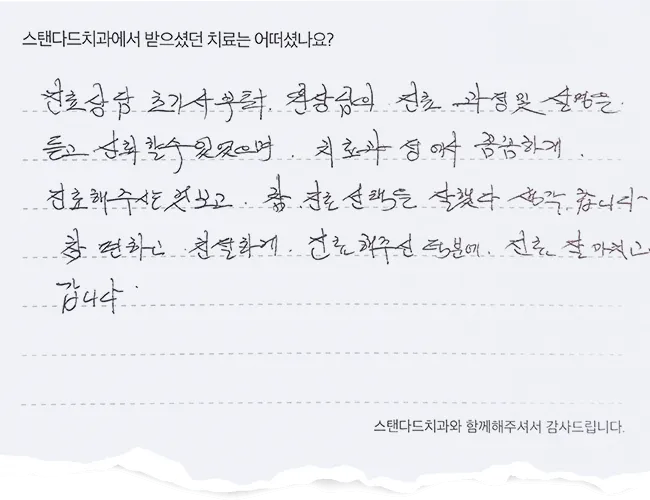 스탠다드치과에서 받으셨던 치료는 어떠셨나요?
진료상담 초기서부터. 원장님의 진료 과정및 설명을.
듣고 신뢰할수 있었으며. 치료과정에서 꼼꼼하게.
진료해주시는것보고. 참 진료선택을 잘했다 생각. 춥니다-
참 편하고 친절하게. 진료해주신 덕분에. 진료. 잘 마치고
갑니다.
스탠다드치과와 함께해주셔서 감사드립니다.